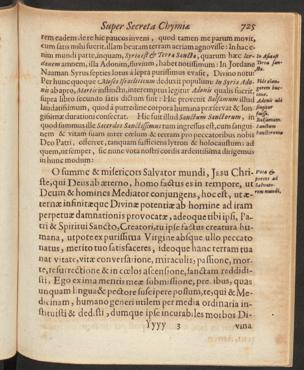 Super Secreta Chymiæ 725
rem eadem de re hic paucos inveni, quod tamen me parum movit,
cum satis mihi fuerit, illam beatam terram aeriam agnovisse: In hac e-
nim mundi parte, inquam, Syriæ & Terra Sancta, quarum hæc
amnem, illa Adonim, fluvium, habet notissimum: In Jordane
Naaman Syrus septies lotus à lepra purissimus evasit, Divino nutu:
Per hunc quoque populum: in Syria Ado-
nis ab apro, Martis instinctu, interemptus legitur Adonis qualis fuerit
supra libro secundo satis dictum sit: Hic provenit Balsamum illud
laudatissimum, quod à putredine corpora humana præservat & lon-
gissimæ durationi consecrat. Hic fuit illud Sanctum Sanctorum, in
quod summus ille Sacerdos Sanctissimus tum ingressus est, cum sangui-
nem & vitam suam inter cœlum & terram pro peccatoribus nobis
Deo Patri, offerret, tanquam sufficiens lytron & holocaustum: ad
quem, ut semper, sic nunc vota nostri cordis ardentissima dirigemus
in hunc modum:
In Assistit
Terra San-
cta.
Adonis
Balsamum.
Sanctum
Sanctorum
O summe & misericors Salvator mundi, Jesu Chri-
ste, qui Deus ab æterno, homo factus es in tempore, ut
Deum & homines Mediator conjungens, hoc est, ut æ-
ternæ infinitæque Divinæ potentiæ ab homine ad iram
perpetuæ damnationis provocatæ, adeoque tibi ipsi, Pa-
tri & Spiritui Sancto, Creatori, tu ipse factus creatura hu-
mana, utpote ex purissima Virgine absque ullo peccato
natus, merito tuo satisfaceres, adeoque hanc terram tua
nativitate, vitæ conversatione, miraculis, passione, mor-
te, resurrectione & in cœlos ascensione, sanctam reddidi-
sti. Ego ex ima mentis meæ submissione, precibus, quas
unquam lingua & pectore suscipere possum, te, qui & Me-
dicinam, humano generi utilem per media ordinaria in-
stituisti & dedisti, dumque ipse incurabiles morbos Di-
Vota &
preces ad
Salvato-
rem mundi.
Yyyy 3 vina